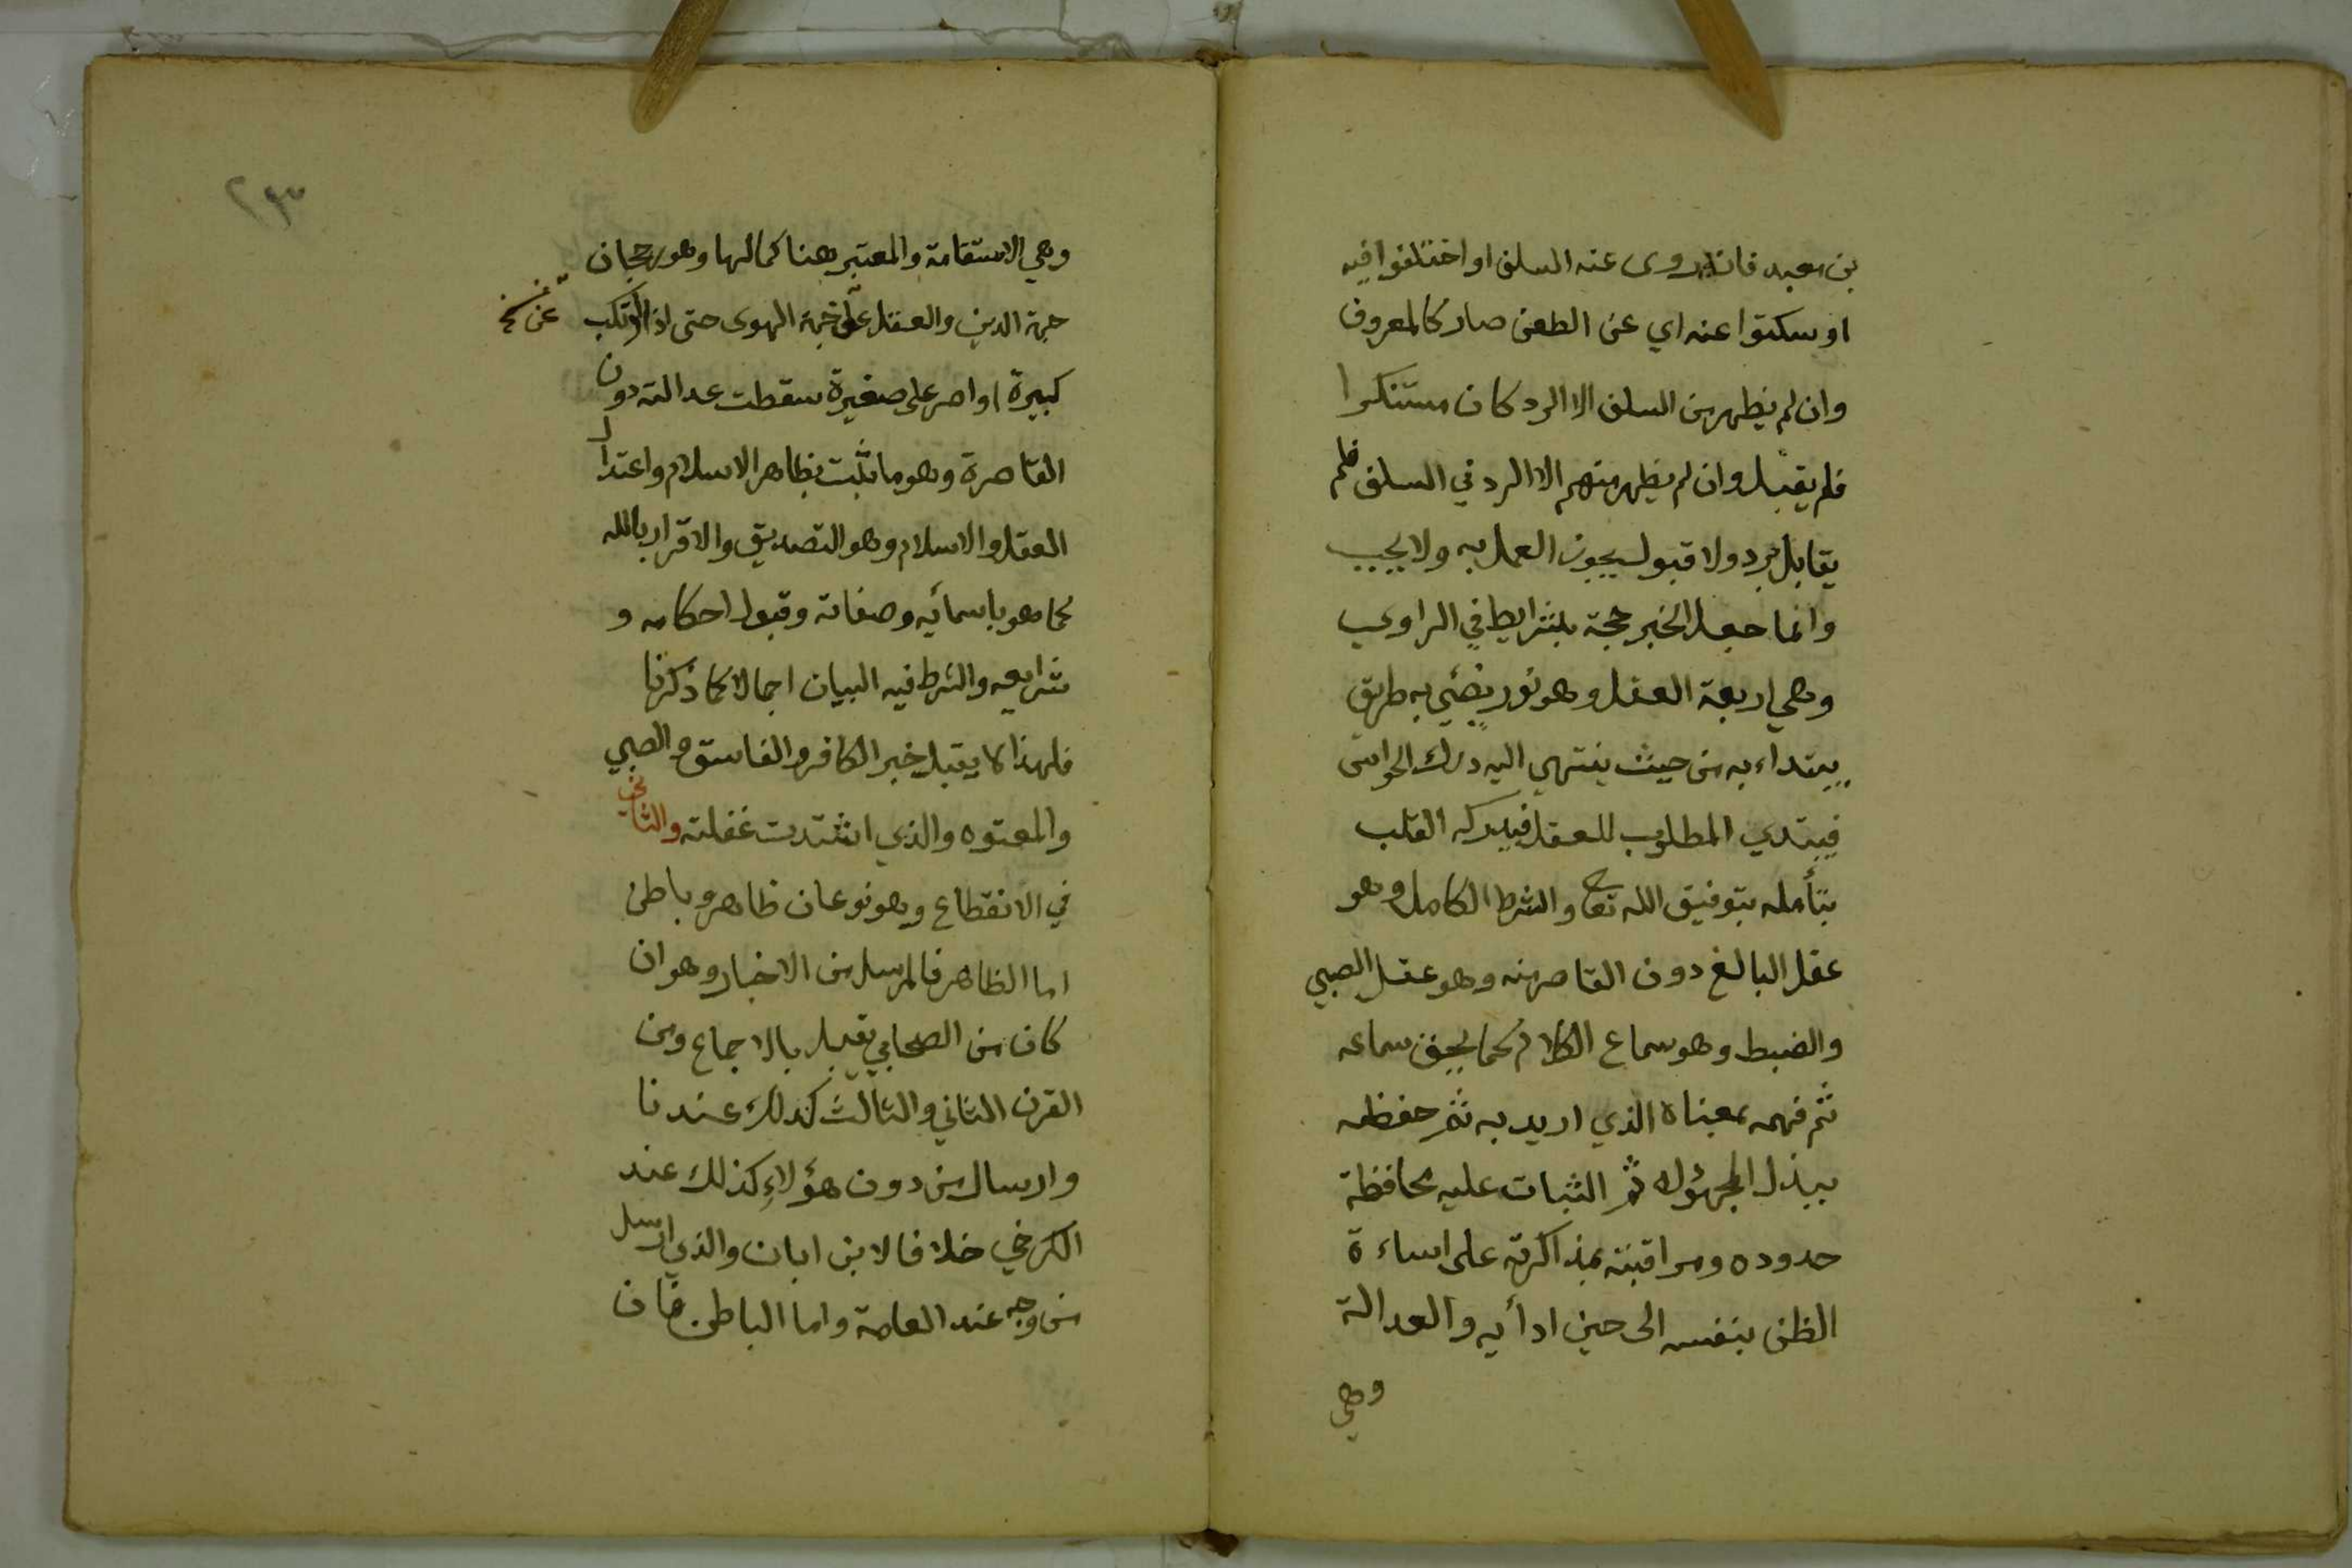 بن معبد فان روى عنه السلف او اختلفوا فيه
او سكتوا عنه اي عن الطعن صار كالمعروف
وان لم يظهر من السلف الا الرد كان مستنكرا
فلم يقبل وان لم يظهر منهم الا الرد في السلف فلم
يقابل برد ولا قبول يجوز العمل به ولا يجب
وانما جعل الخبر حجة بشرايط في الراوي
وهي اربعة العقل وهو نور يضئي به طريق
يبتداء به من حيث ينتهي اليه درك الحواس
فيبتدي المطلوب للعقل فيدركه القلب
بتأمله بتوفيق الله تع والشرط الكامل وهو
عقل البالغ دون القاصر منه وهو عقل الصبي
والضبط وهو سماع الكلام كما يحق سماعه
ثم فهمه بمعناه الذي اريد به ثم حفظه
ببذل المجهول ثم الثبات عليه بمحافظة
حدوده ومراقبته بمذاكرته على اساءة
الظن بنفسه الى حين ادأيه والعدالة
وهي
٢٣
وهي الاستقامة والمعتبر ههنا كمالها وهو رجحان
جهة الدين والعقل على جهة الهوى حتى اذا ارتكب
عن نسخ
كبيرة او اصر على صغيرة سقطت عدالته دون
القاصرة وهو ما ثبت بظاهر الاسلام واعتدال
العقل والاسلام وهو التصديق والاقرار بالله
كما هو باسمائه وصفاته وقبول احكامه و
شرايعه والشرط فيه البيان اجمالا كما ذكرنا
فلهذا لا يقبل خبر الكافر والفاسق والصبي
والمعتوه والذي اشتدت غفلته والثاني
في الانقطاع وهو نوعان ظاهر وباطن
اما الظاهر فالمرسل من الاخبار وهو ان
كان من الصحابي يقبل بالاجماع ومن
القرن الثاني والثالث كذلك عندنا
وارسال من دون هؤلاء كذلك عند
الكرخي خلافا لابن ابان والذي ارسل
من وجه عند العامة واما الباطن فان